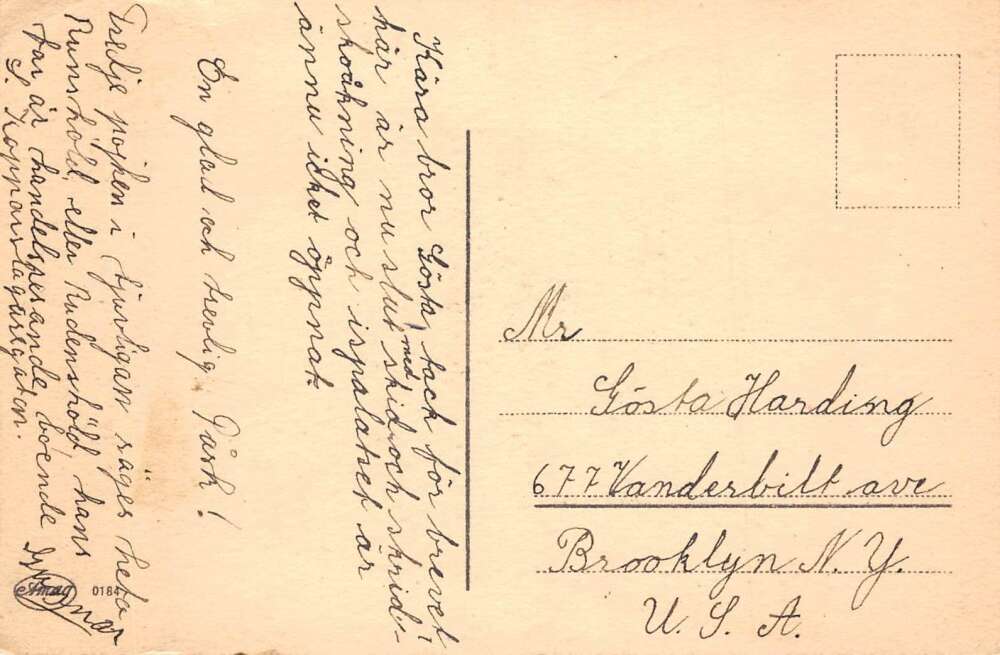 Kära bror Gösta, tack för brevet!
här är nu slut med skid och skrid-
skoåkning och ispalatset är
ännu icket öppnat.
En glad och trevlig Påsk!
Tredje pojken i tjuvligan säges heta
Runshöld, eller Rudenshöld, hans
far är handelsresande boende
S. Kopparslagaregatan.
Mr
Gösta Harding
677 Vanderbilt ave
Brooklyn N. Y.
U. S. A.
Amag 0184